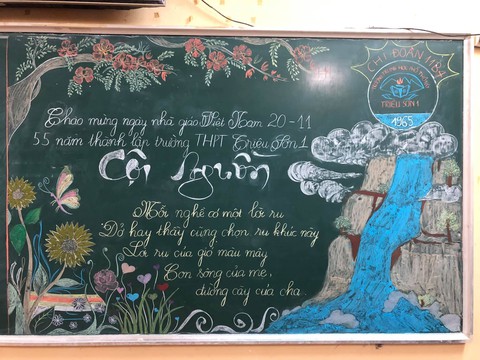 Chào mừng ngày nhà giáo Việt Nam 20-11
55 năm thành lập trường THPT Triệu Sơn 1
Cội Nguồn
Mỗi nghề có một lời ru
Dở hay thầy cũng chọn ru khúc này
Lời ru của gió màu mây
Con sông của mẹ,
đường cày của cha...
CHI ĐOÀN 11B4
TRIỆU SƠN 1
1965